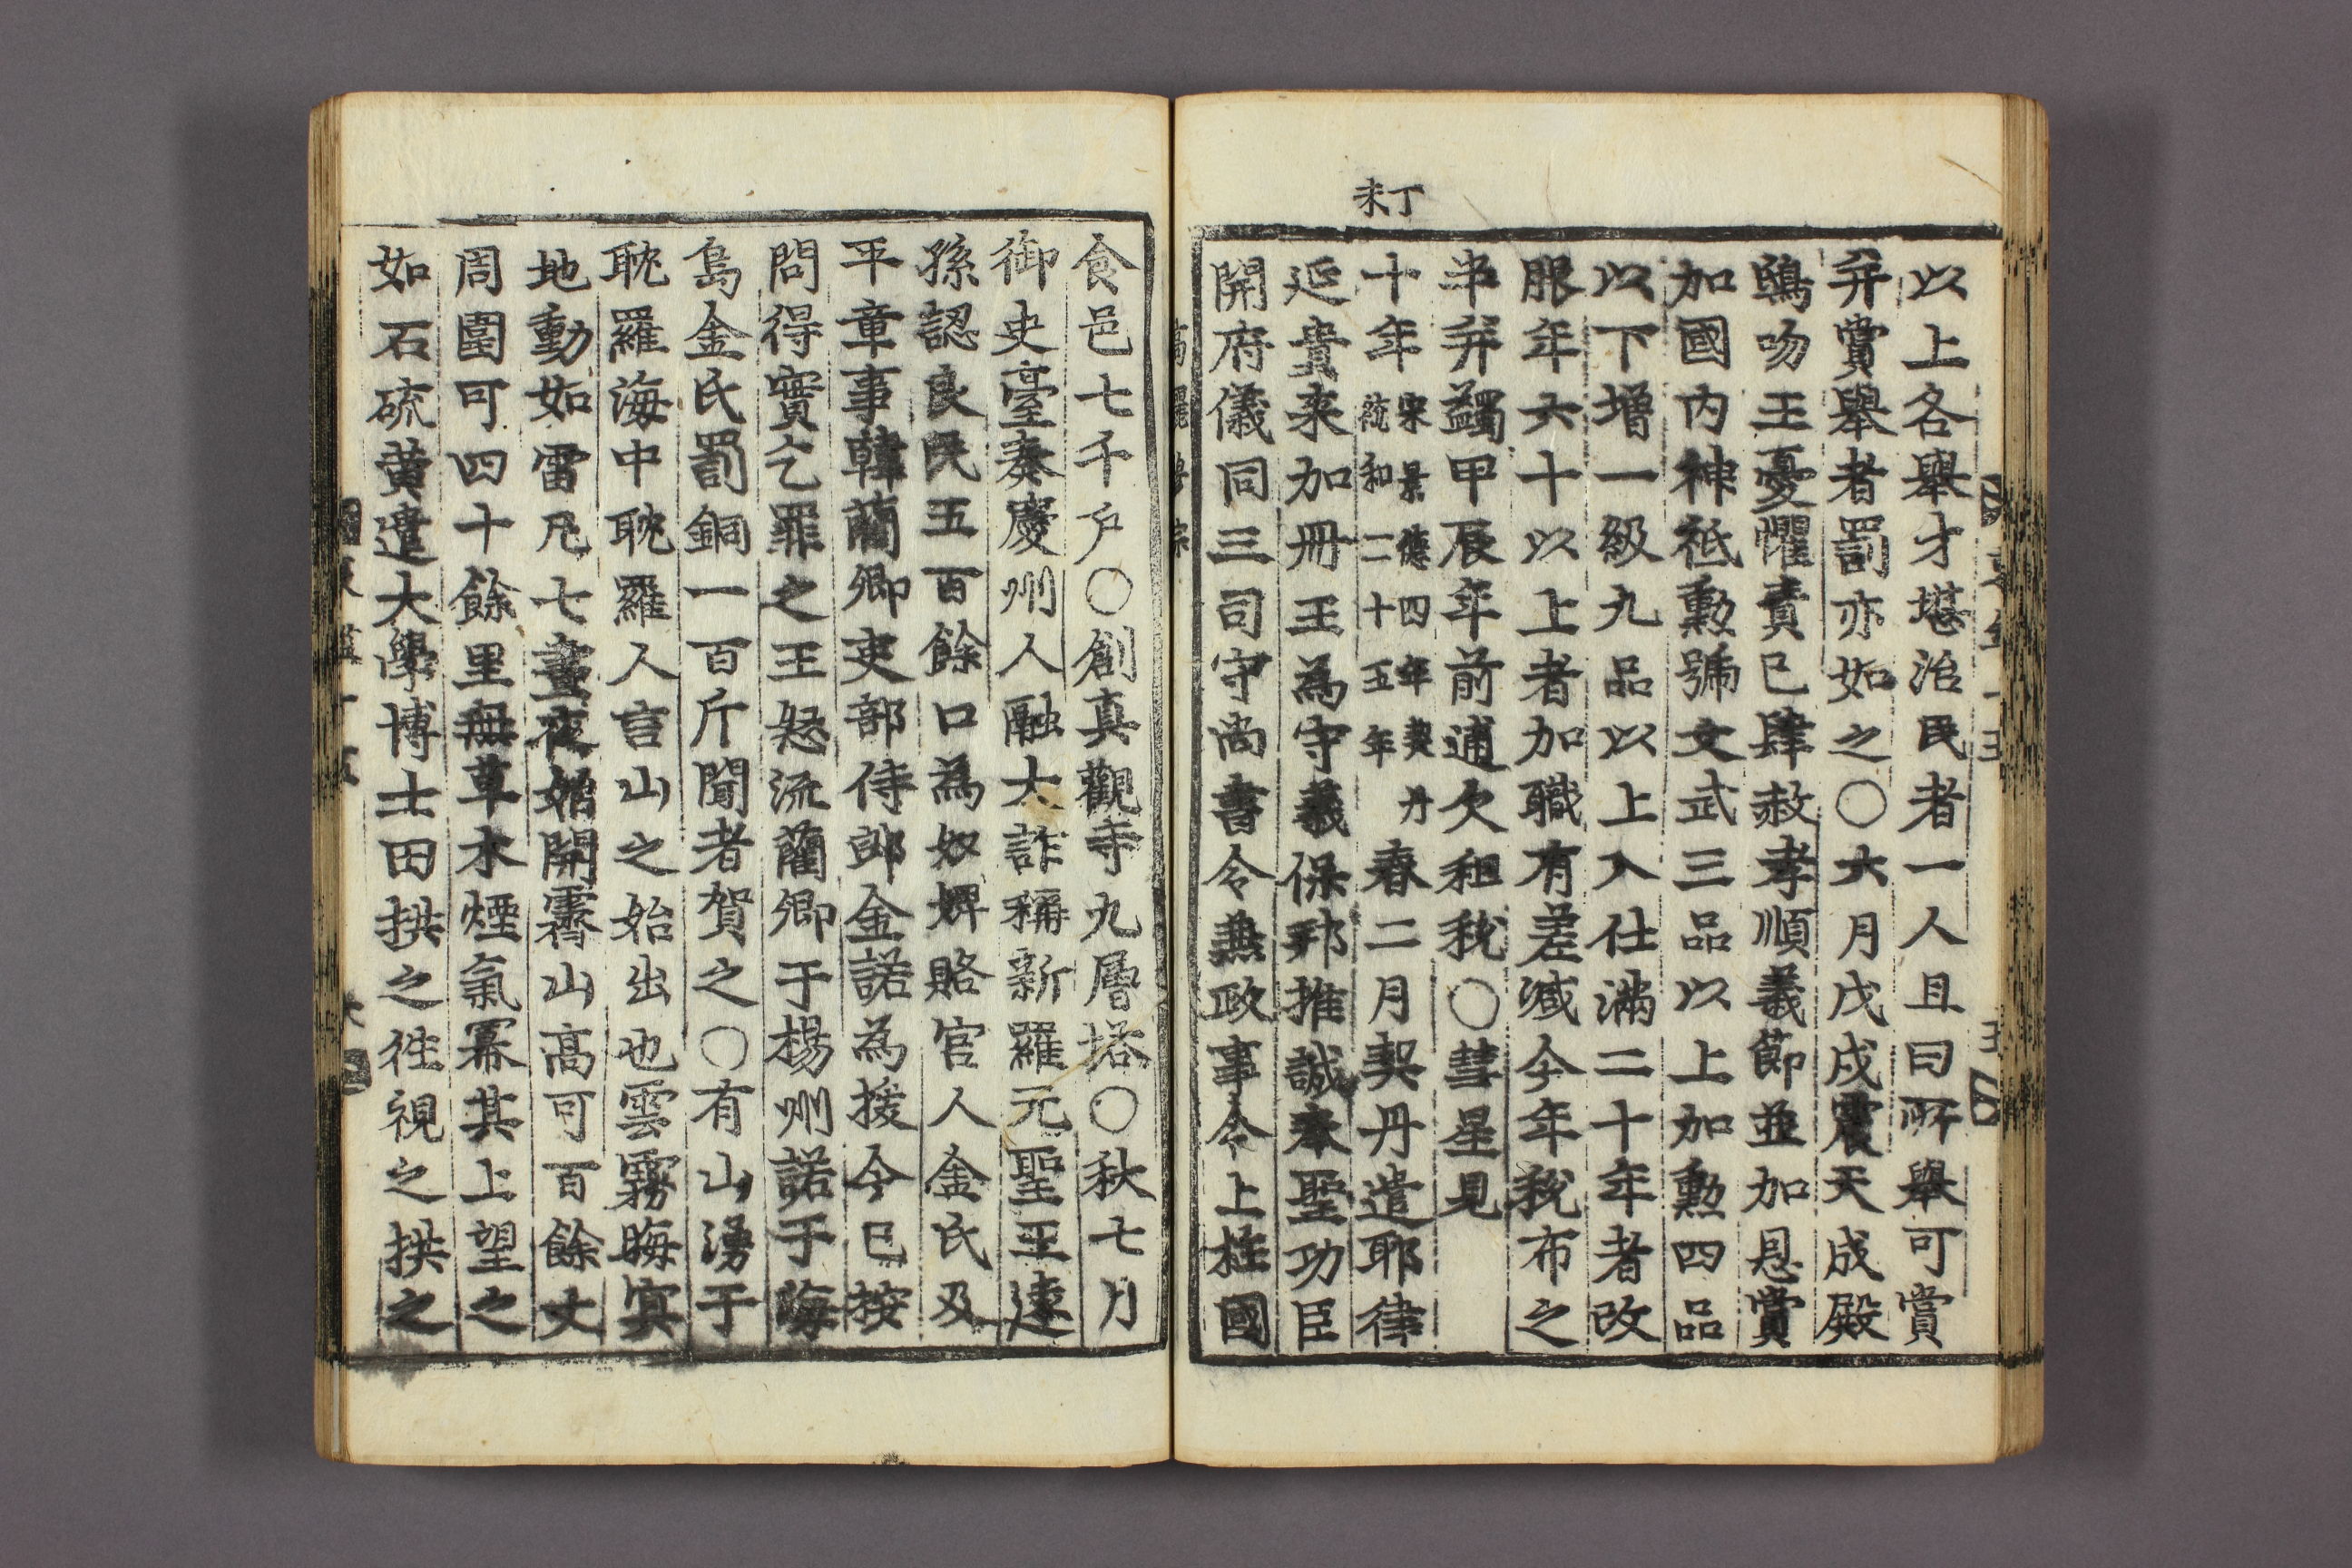 以上各舉才堪治民者一人且曰所舉可賞
并賞舉者罰亦如之○六月戊戌震天成殿
鴟吻王憂懼責己肆赦孝順義節並加恩賞
加國内神祗勳號文武三品以上加勳四品
以下增一級九品以上入仕滿二十年者改
服年六十以上者加職有差减今年稅布之
半并蠲甲辰年前逋欠租稅○彗星見
丁未
十年宋景德四年契丹統和二十五年春二月契丹遣耶律
延貴来加冊王為守義保邦推誠奉聖功臣
開府儀同三司守尚書令兼政事令上柱國
食邑七千戶○創真觀寺九層塔○秋七月
御史臺奏慶州人融大詐稱新羅元聖王遠
孫認良民五百餘口為奴婢賂宦人金氏及
平章事韓藺卿吏部侍郎金諾為援今已按
問得實乞罪之王怒流藺卿于楊州諾于海
島金氏罰銅一百斤聞者賀之○有山湧于
耽羅海中耽羅人言山之始出也雲霧晦冥
地動如雷凡七晝夜始開霽山高可百餘丈
周圍可四十餘里無草木煙氣羃其上望之
如石硫黄遣大學博士田拱之徃視之拱之